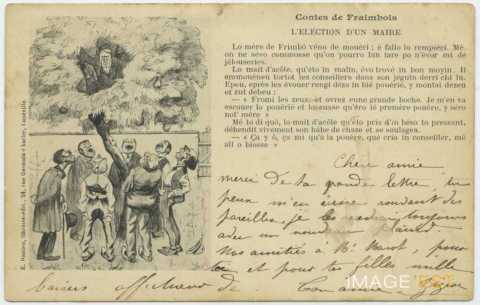 Contes de Fraimbois
L'ELECTION D'UN MAIRE
Lo mére de Frimbó véno de mouéri ; é fallo lo rempiéci. Mé
on ne sévo commosse qu'on pourro bin tare po n'évor mi dé
jélouseries.
Lo mait d'acôle, qu'éto in malin, évo trové in bon moyin. Il
emmouénen tortot les conseillers dans son jequin derri chi lu.
Epeu, eprès les évouer rengi dézo in hié pouérié, y montai dezeu
et zut debeu :
— « Fromi les zeux et ovrez eune grande boche. Je m'en va
escouer lo pouérié et laususse qu'éro lé premère pouére, y séro
not' mére »
Mé to di qué, lo mait d'acôle qu'éto pris d'in béso to pressant,
débendit vivement son hâbe de chaze et se soulagea.
— « Ça y ô, ça mi qu'a la pouére, qué crio in conseiller, mé
all o biosse »
E. Bastien, libraire-édit., 24, rue Germain-Charier, Lunéville
Chère amie
merci de ta grande lettre, tu
peux m'en écrire souvent des
pareilles, je les recevrai toujours
avec un nouveau plaisir.
Nos amitiés à Mr pour
toi et pour tes filles mille
baisers affectueux de Ton amie
IMAGE